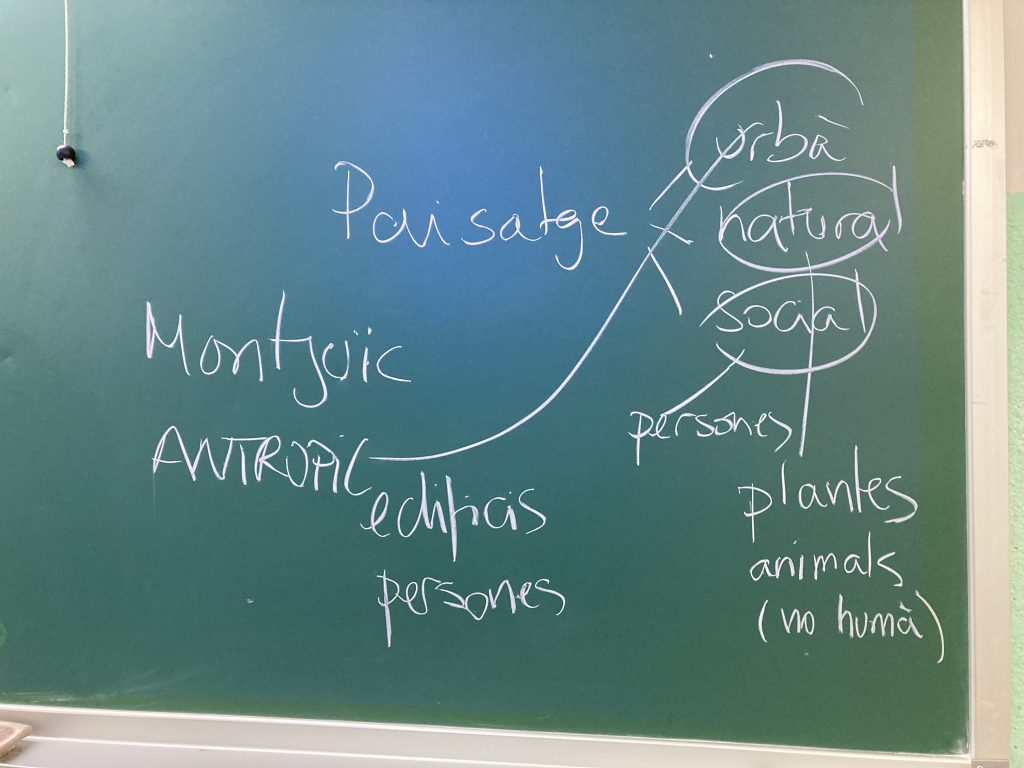 Paisatge
urbà
natural
social
persones
plantes
animals
(no humà)
Montjuïc
ANTROPIC
edificis
persones